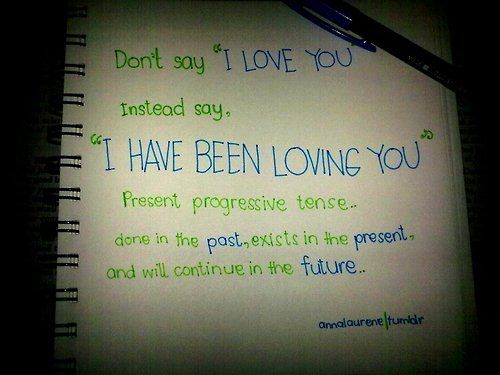 Don't say "I LOVE YOU
Instead say,
"I HAVE BEEN LOVING YOU"
Present progressive tense..
done in the past, exists in the present,
and will continue in the future..
annalaurene|tumblr